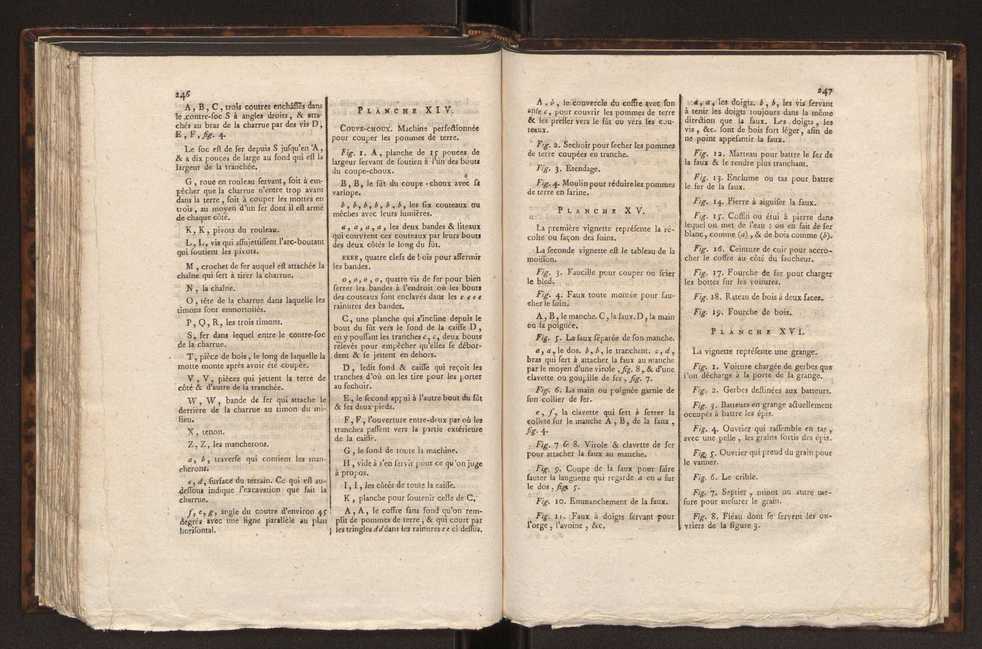 246
A, B, C, trois coutres enchâssés dans
le contre-soc S à angles droits, & atta-
chés au bras de la charrue par des vis D,
E, F, fig. 4.
Le soc est de fer depuis S jusqu'en A,
& a dix pouces de large au fond qui est la
largeur de la tranchée.
G, roue en rouleau servant, soit à em-
pêcher que la charrue n'entre trop avant
dans la terre, soit à couper les mottes en
trois, au moyen d'un fer dont il est armé
de chaque côté.
K, K, pivots du rouleau.
L, L, vis qui assujettissent l'arc-boutant
qui soutient les pivots.
M, crochet de fer auquel est attachée la
chaîne qui sert à tirer la charrue.
N, la chaîne.
O, tête de la charrue dans laquelle les
timons sont emmortoisés.
P, Q, R, les trois timons.
S, fer dans lequel entre le contre-soc
de la charrue.
T, pièce de bois, le long de laquelle la
motte monte après avoir été coupée.
V, V, pièces qui jettent la terre de
côté & d'autre de la tranchée.
W, W, bande de fer qui attache le
derrière de la charrue au timon du mi-
lieu.
X, tenon.
Z, Z, les mancherons.
a, b, traverse qui contient les man-
cherons.
c, d, surface du terrain. Ce qui est au-
dessous indique l'excavation que fait la
charrue.
f, e, g, angle du coutre d'environ 45
degrés avec une ligne parallèle au plan
horisontal.
PLANCHE XIV.
COUPE-CHOUX. Machine perfectionnée
pour couper les pommes de terre.
Fig. 1. A, planche de 15 pouces de
largeur servant de soutien à l'un des bouts
du coupe-choux.
B, B, le fût du coupe-choux avec sa
varlope.
b, b, b, b, b, b, les six couteaux ou
mèches avec leurs lumières.
a, a, a, a, les deux bandes & liteaux
qui couvrent ces couteaux par leurs bouts
des deux côtés le long du fût.
eeee, quatre clefs de bois pour affermir
les bandes.
o, o, o, o, quatre vis de fer pour bien
serrer les bandes à l'endroit où les bouts
des couteaux sont enclavés dans les e e e e
rainures des bandes.
C, une planche qui s'incline depuis le
bout du fût vers le fond de la caisse D,
en y poussant les tranches c, c, deux bouts
relevés pour empêcher qu'elles se débor-
dent & se jettent en dehors.
D, ledit fond & caisse qui reçoit les
tranches d'où on les tire pour les porter
au sechoir.
E, le second appui à l'autre bout du fût
& ses deux pieds.
F, F, l'ouverture entre-deux par où les
tranches passent vers la partie extérieure
de la caisse.
G, le fond de toute la machine.
H, vide à s'en servir pour ce qu'on juge
à propos.
I, I, les côtés de toute la caisse.
K, planche pour soutenir celle de C.
A, A, le coffre sans fond qu'on rem-
plit de pommes de terre, & qui court par
les tringles dd dans les rainures ee ci dessus.
247
A, b, le couvercle du coffre avec son
anse c, pour couvrir les pommes de terre
& les presser vers le fût ou vers les cou-
teaux.
Fig. 2. Sechoir pour secher les pommes
de terre coupées en tranche.
Fig. 3. Etendage.
Fig. 4. Moulin pour réduire les pommes
de terre en farine.
PLANCHE XV.
La première vignette représente la ré-
colte ou façon des foins.
La seconde vignette est le tableau de la
moisson.
Fig. 3. Faucille pour couper ou scier
le bled.
Fig. 4. Faux toute montée pour fau-
cher le foin.
A, B, le manche. C, la faux. D, la main
ou la poignée.
Fig. 5. La faux séparée de son manche.
a, a, le dos. b, b, le tranchant. c, d,
bras qui sert à attacher la faux au manche
par le moyen d'une virole, fig. 8, & d'une
clavette ou goupille de fer, fig. 7.
Fig. 6. La main ou poignée garnie de
son collier de fer.
e, f, la clavette qui sert à serrer la
collette sur le manche A, B, de la faux,
fig. 4.
Fig. 7 & 8. Virole & clavette de fer
pour attacher la faux au manche.
Fig. 9. Coupe de la faux pour faire
sauter la languette qui regarde a en a sur
le dos, fig. 5.
Fig. 10. Emmanchement de la faux.
Fig. 11. Faux à doigts servant pour
l'orge, l'avoine, &c.
a, a, les doigts. b, b, les vis servant
à tenir les doigts toujours dans la même
direction que la faux. Les doigts, les
vis, &c. sont de bois fort léger, afin de
ne point appesantir la faux.
Fig. 12. Marteau pour battre le fer de
la faux & le rendre plus tranchant.
Fig. 13. Enclume ou tas pour battre
le fer de la faux.
Fig. 14. Pierre à aiguiser la faux.
Fig. 15. Coffin ou étui à pierre dans
lequel on met de l'eau : on en fait de fer
blanc, comme (a), & de bois comme (b).
Fig. 16. Ceinture de cuir pour accro-
cher le coffin au côté du faucheur.
Fig. 17. Fourche de fer pour charger
les bottes sur les voitures.
Fig. 18. Rateau de bois à deux faces.
Fig. 19. Fourche de bois.
PLANCHE XVI.
La vignette représente une grange.
Fig. 1. Voiture chargée de gerbes que
l'on décharge à la porte de la grange.
Fig. 2. Gerbes destinées aux batteurs.
Fig. 3. Batteurs en grange actuellement
occupés à battre les épis.
Fig. 4. Ouvrier qui rassemble en tas,
avec une pelle, les grains sortis des épis.
Fig. 5. Ouvrier qui prend du grain pour
le vanner.
Fig. 6. Le crible.
Fig. 7. Septier, minot ou autre me-
sure pour mesurer le grain.
Fig. 8. Fléau dont se servent les ou-
vriers de la figure 3.